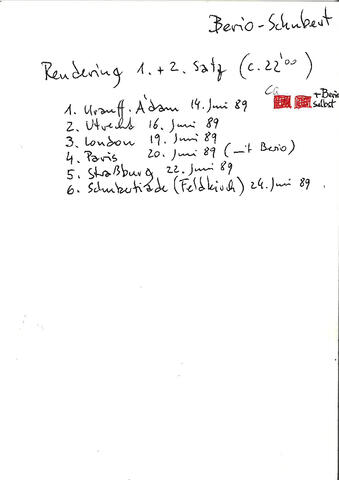 Berio-Schubert
Rendering 1. + 2. Satz (c. 22'00)
ca
+ Berio
selbst
1. Urauff. A'dam 14. Juni 89
2. Utrecht 16. Juni 89
3. London 19. Juni 89
4. Paris 20. Juni 89 ( Berio)
5. Straßburg 22. Juni 89
6. Schubertiade (Feldkirch) 24. Juni 89.